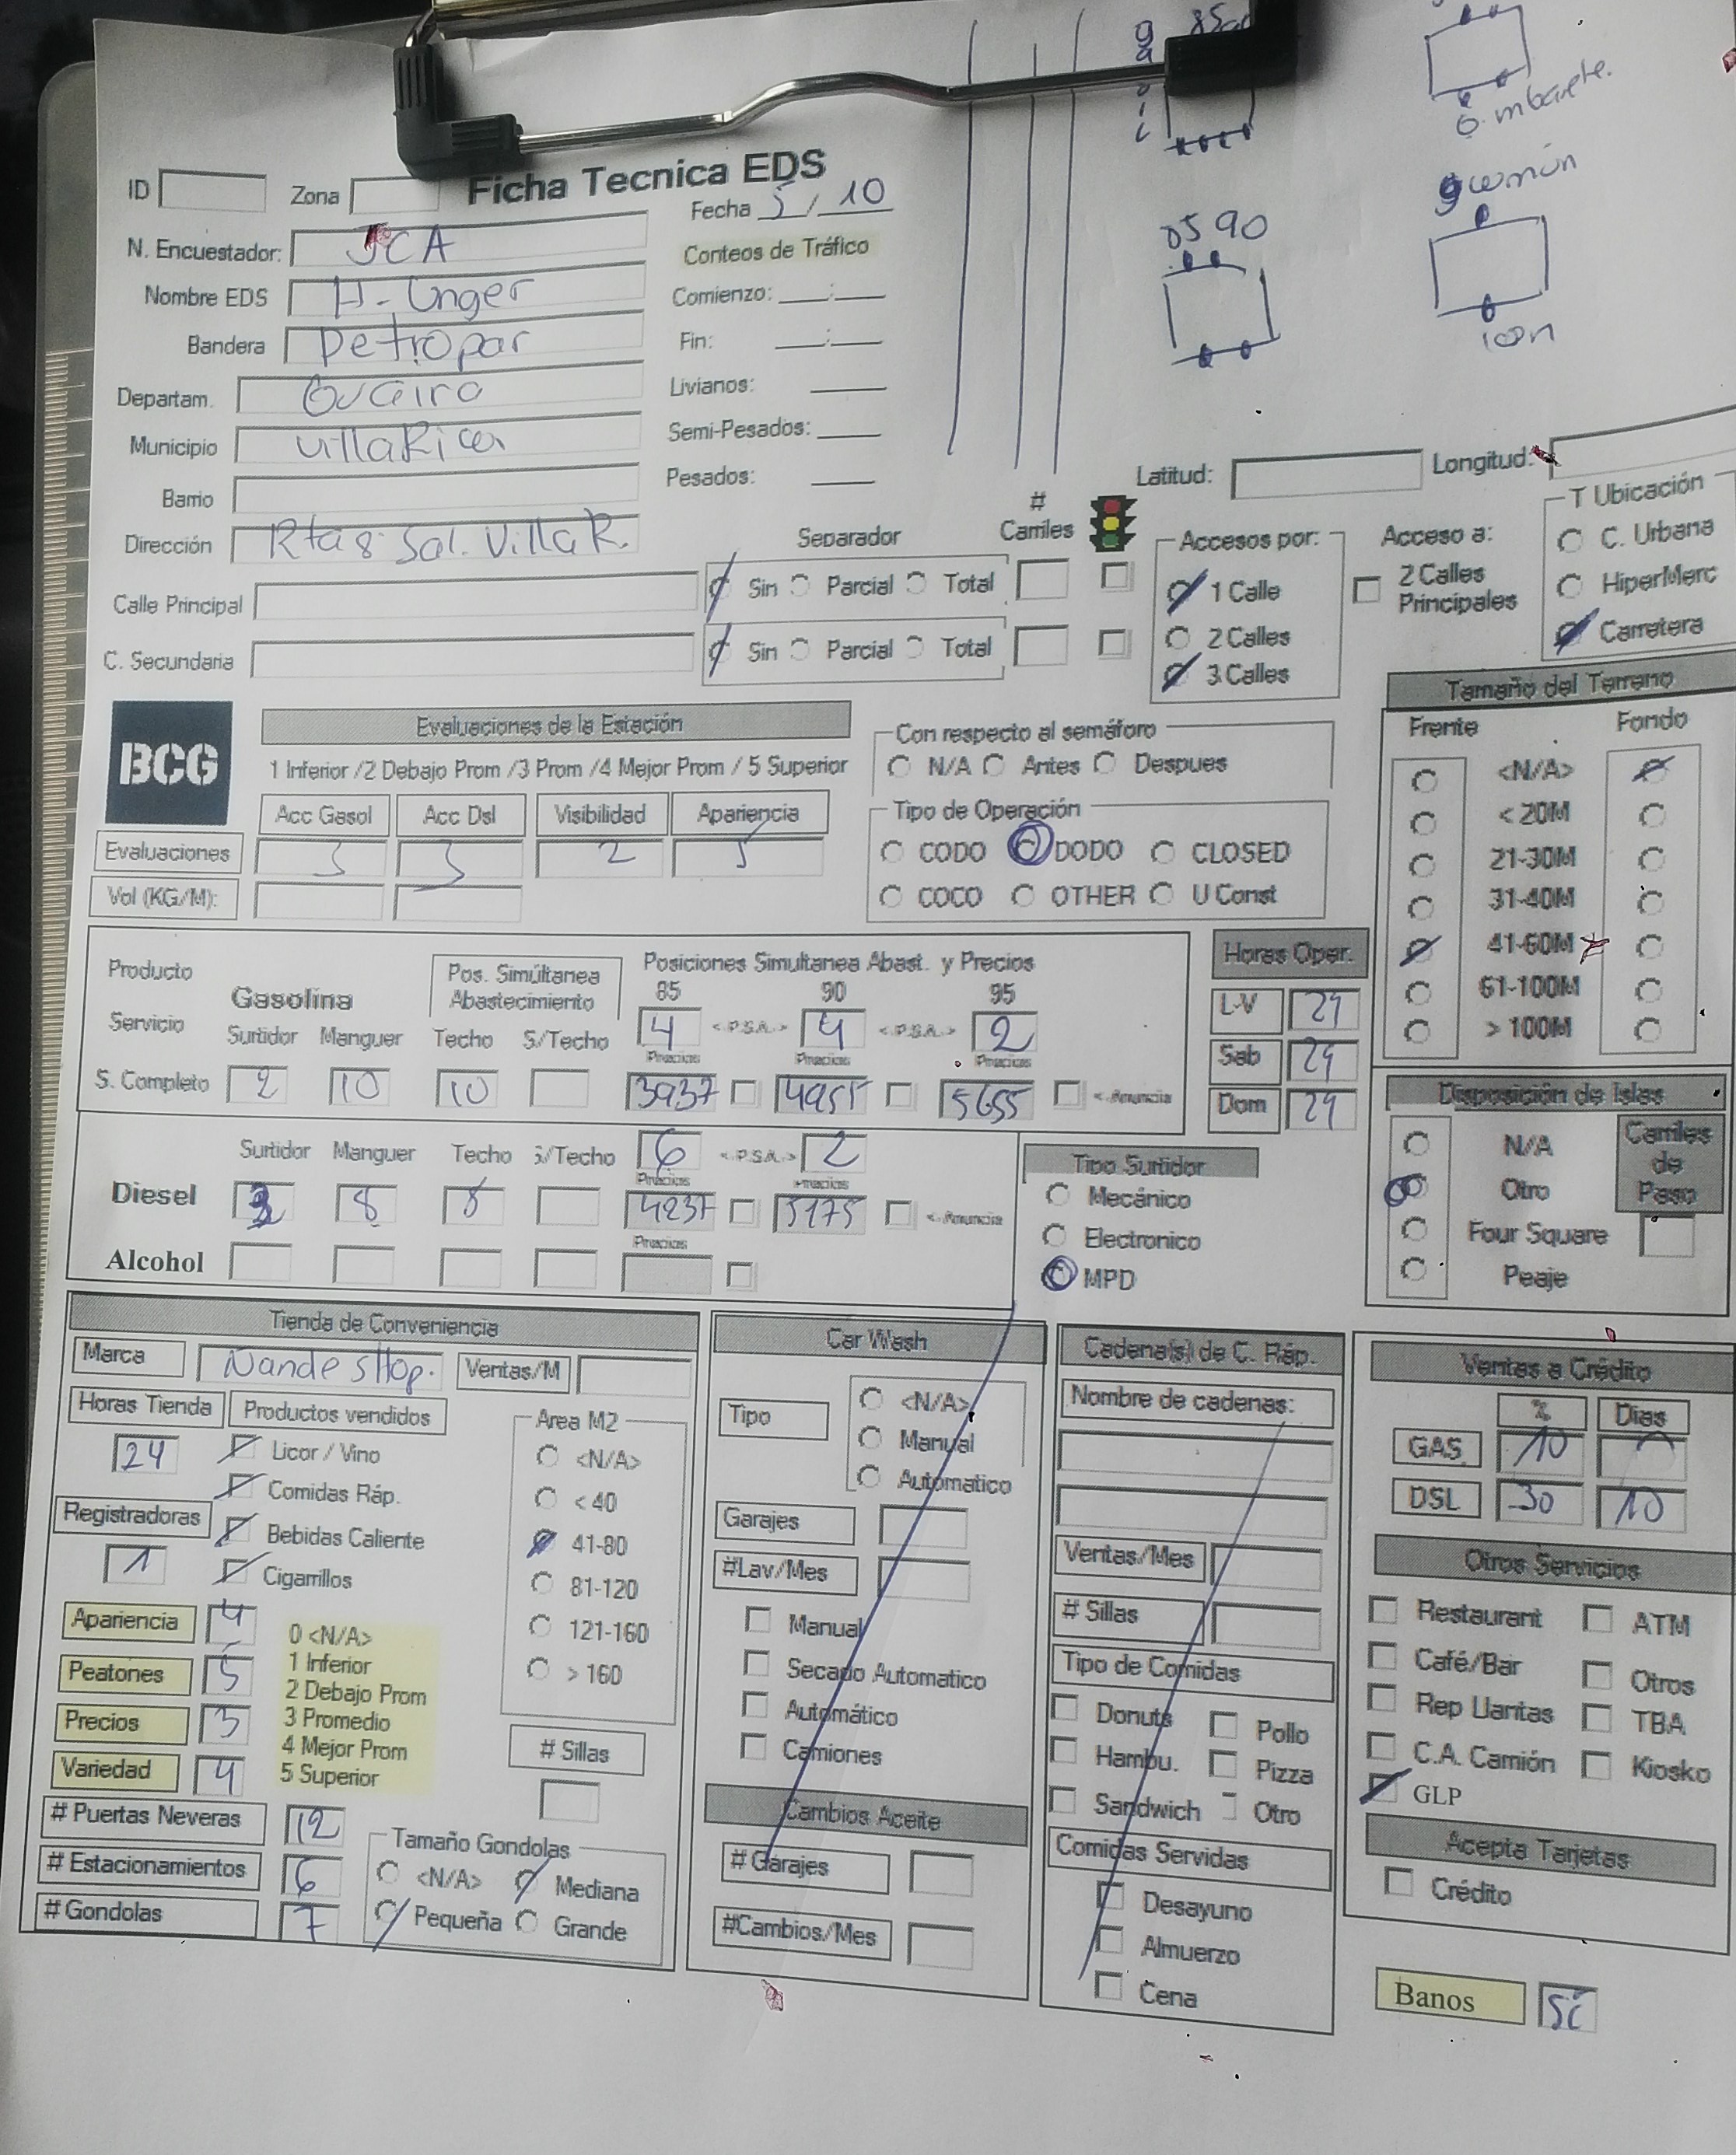 85
mbarete.
8590
común
ion
Ficha Tecnica EDS
ID
Zona
Fecha 5 / 10
N. Encuestador: JCA
Conteos de Tráfico
Nombre EDS H. Unger
Comienzo: __:__
Bandera Petropar
Fin: __:__
Departam. Guaira
Livianos:
Municipio VillaRica
Semi-Pesados:
Barrio
Pesados:
Latitud:
Longitud:
Dirección Rta 8 Sal. Villa R.
Separador
# Carriles
Calle Principal
Sin Parcial Total
C. Secundaria
Sin Parcial Total
Accesos por:
1 Calle
2 Calles
3 Calles
Acceso a:
2 Calles Principales
T Ubicación
C. Urbana
HiperMerc
Carretera
BCG
Evaluaciones de la Estación
1 Inferior /2 Debajo Prom /3 Prom /4 Mejor Prom / 5 Superior
Acc Gasol Acc Dsl Visibilidad Apariencia
Evaluaciones 3 3 2 5
Vol (KG/M):
Con respecto al semáforo
N/A Antes Despues
Tipo de Operación
CODO DODO CLOSED
COCO OTHER U Const
Tamaño del Terreno
Frente Fondo
<N/A>
< 20M
21-30M
31-40M
41-60M
61-100M
> 100M
Producto
Gasolina
Pos. Simúltanea Abastecimiento
Posiciones Simultanea Abast. y Precios
85 90 95
Servicio
Surtidor Manguer Techo S./Techo
4 <.P.S.A.> 4 <.P.S.A.> 2
Precios Precios Precios
S. Completo 2 10 10 3937 4955 5655 <.Anuncia
Horas Oper.
L-V 24
Sab 24
Dom 24
Surtidor Manguer Techo S/Techo
6 <.P.S.A.> 2
Precios Precios
Diesel 3 8 8 4237 5175 <.Anuncia
Precios
Alcohol
Tipo Surtidor
Mecánico
Electronico
MPD
Disposición de Islas
N/A
Otro
Four Square
Peaje
Carriles de Paso
Tienda de Conveniencia
Marca Nande sHop. Ventas/M
Horas Tienda
24
Productos vendidos
Licor / Vino
Comidas Ráp.
Bebidas Caliente
Cigarrillos
Registradoras
1
Area M2
<N/A>
< 40
41-80
81-120
121-160
> 160
Apariencia 4
Peatones 5
Precios 3
Variedad 4
0 <N/A>
1 Inferior
2 Debajo Prom
3 Promedio
4 Mejor Prom
5 Superior
# Sillas
# Puertas Neveras 12
# Estacionamientos 6
# Gondolas 7
Tamaño Gondolas
<N/A> Mediana
Pequeña Grande
Car Wash
Tipo
<N/A>
Manual
Automatico
Garajes
#Lav/Mes
Manual
Secado Automatico
Automático
Camiones
Cambios Aceite
# Garajes
#Cambios/Mes
Cadena(s) de C. Ráp.
Nombre de cadenas:
Ventas/Mes
# Sillas
Tipo de Comidas
Donuts Pollo
Hambu. Pizza
Sandwich Otro
Comidas Servidas
Desayuno
Almuerzo
Cena
Ventas a Crédito
% Dias
GAS 10
DSL 30 10
Otros Servicios
Restaurant ATM
Café/Bar Otros
Rep Llantas TBA
C.A. Camión Kiosko
GLP
Acepta Tarjetas
Crédito
Banos Sí